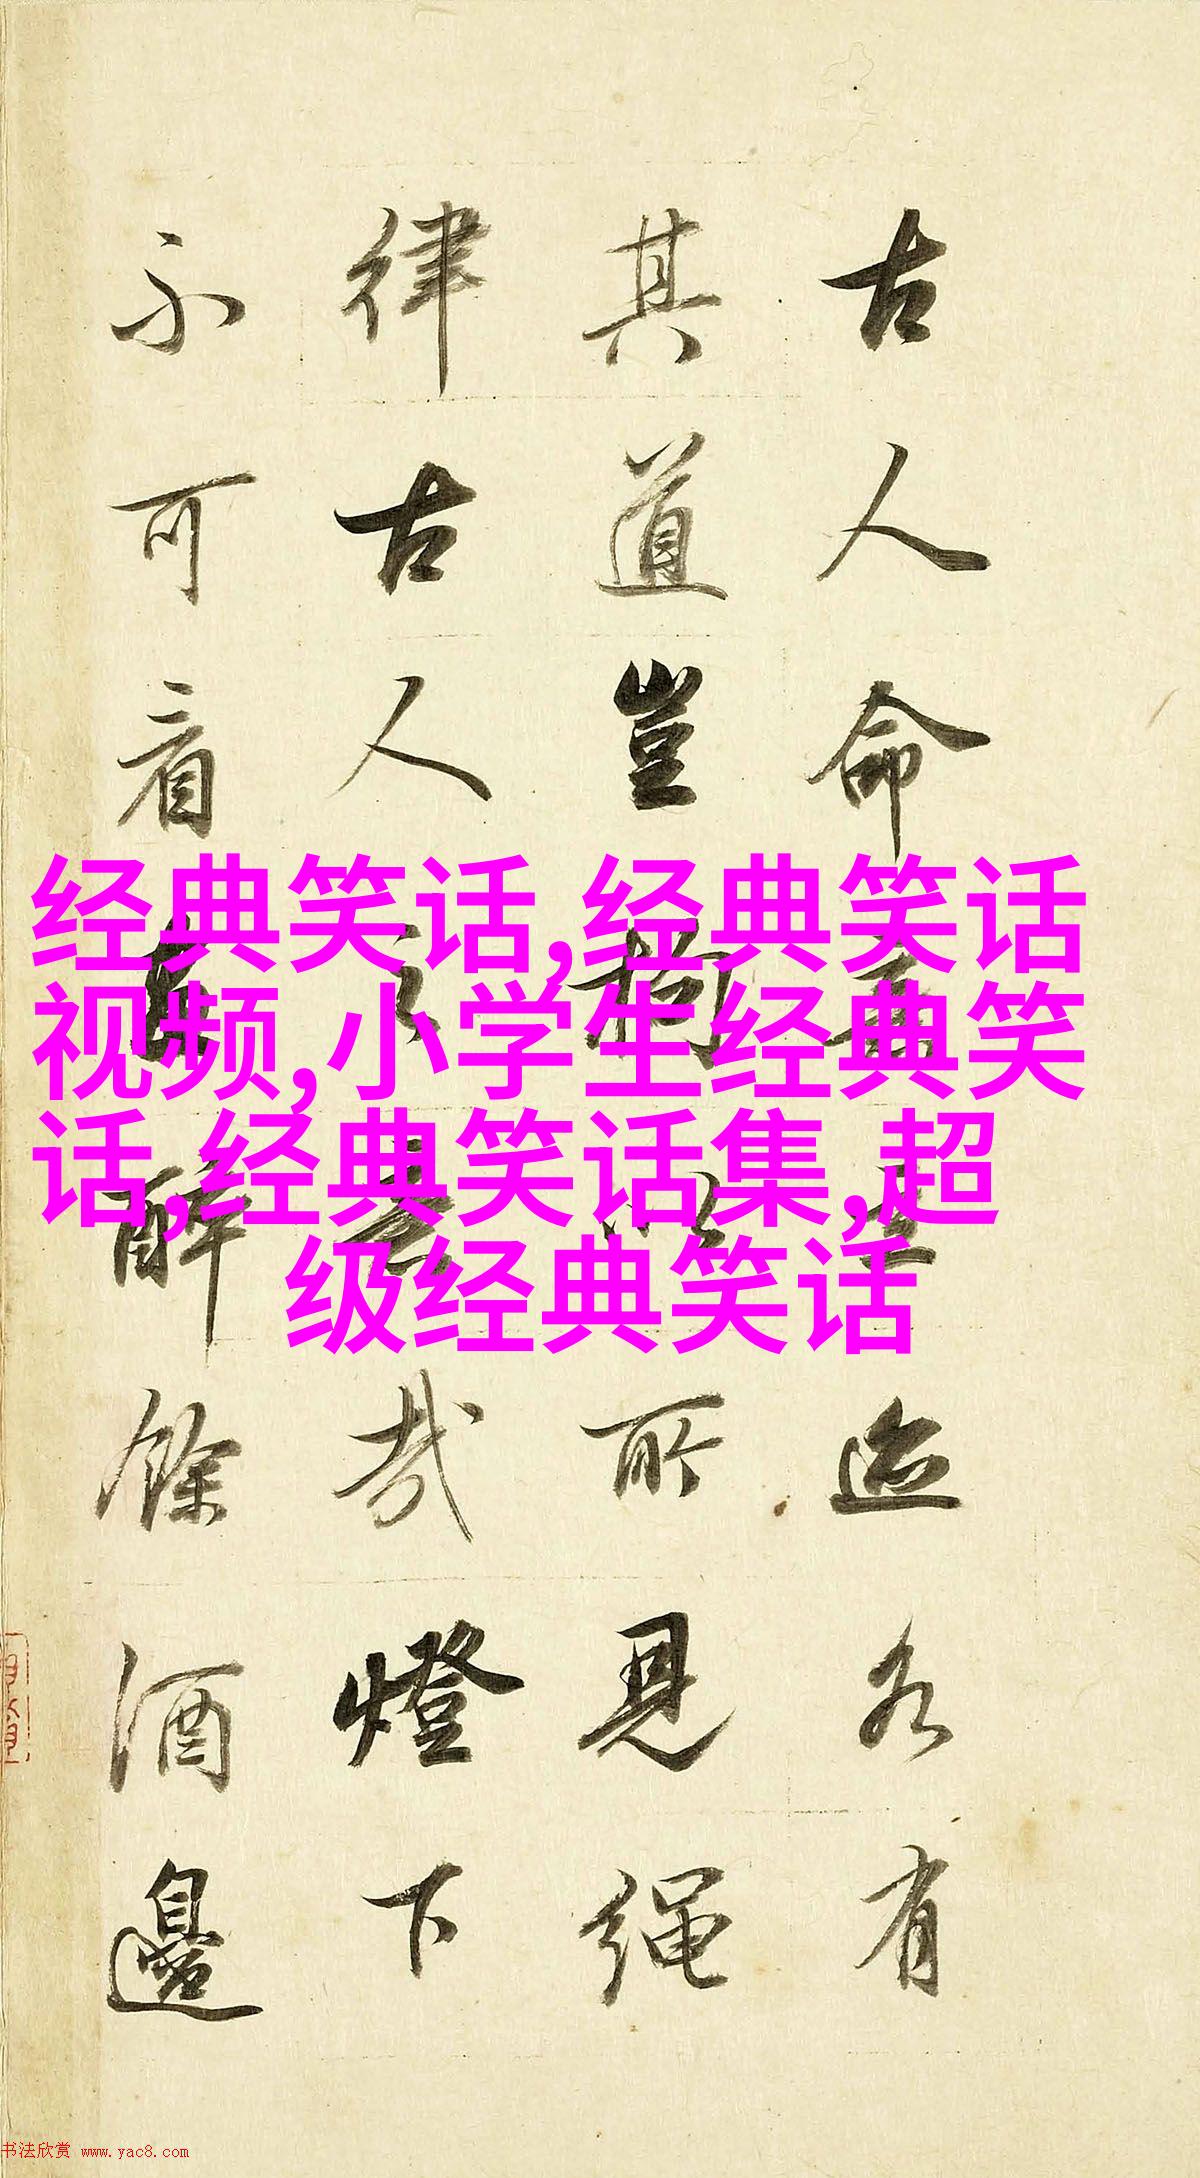 古人命意立迹各有
其道豈拘以所見繩
律古人之意哉燈下
不可看画醉餘酒邊
经典笑话,经典笑话
视频,小学生经典笑
话,经典笑话集,超
级经典笑话
书法欣赏 www.yac8.com